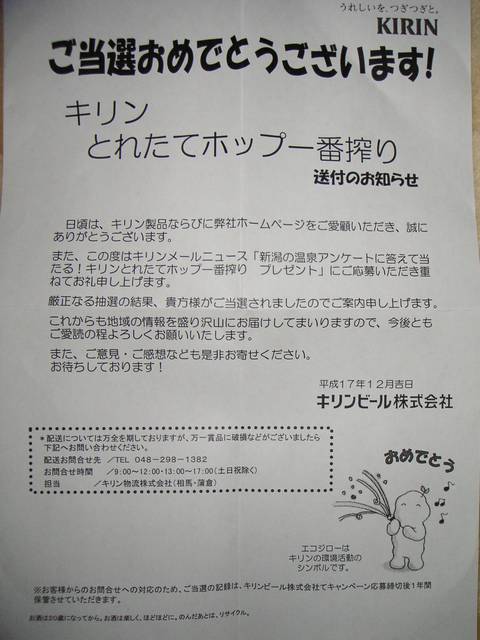 うれしいを、つぎつぎと。
KIRIN
ご当選おめでとうございます!
キリン
とれたてホップ一番搾り
送付のお知らせ
日頃は、キリン製品ならびに弊社ホームページをご愛顧いただき、誠に
ありがとうございます。
また、この度はキリンメールニュース「新潟の温泉アンケートに答えて当
たる!キリンとれたてホップ一番搾り プレゼント」にご応募いただき重
ねてお礼申し上げます。
厳正なる抽選の結果、貴方様がご当選されましたのでご案内申し上げます。
これからも地域の情報を盛り沢山にお届けしてまいりますので、今後とも
ご愛読の程よろしくお願いいたします。
また、ご意見・ご感想なども是非お寄せください。
お待ちしております!
平成17年12月吉日
キリンビール株式会社
*配送については万全を期しておりますが、万一賞品に破損などがございましたら
下記へお問い合わせください。
配送お問合せ先 /TEL 048-298-1382
お問合せ時間 /9:00~12:00・13:00~17:00(土日祝除く)
担当 /キリン物流株式会社(相馬・蒲倉)
おめでとう
エコジローは
キリンの環境活動の
シンボルです。
※お客様からのお問合せへの対応のため、ご当選の記録は、キリンビール株式会社でキャンペーン応募締切後1年間
保管させていただきます。
お酒は20歳になってから。お酒は楽しく、ほどほどに。のんだあとは、リサイクル。